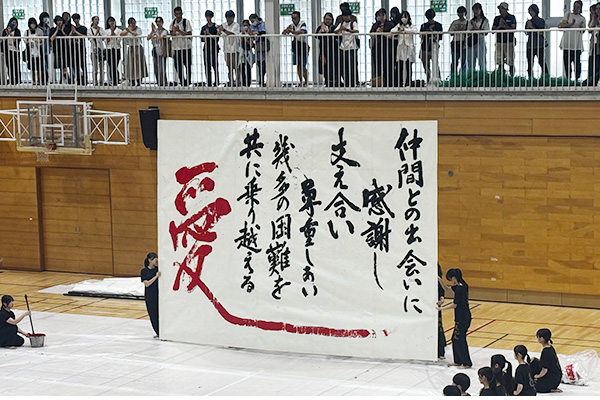 仲間との出会いに
感謝し
支え合い
尊重しあい
幾多の困難を
共に乗り越える
愛